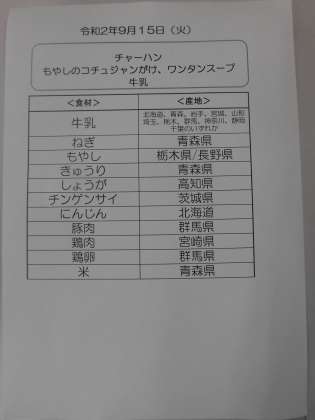 令和2年9月15日（火）
チャーハン
もやしのコチュジャンがけ、ワンタンスープ
牛乳
＜食材＞ ＜産地＞
牛乳 北海道、青森、岩手、宮城、山形
埼玉、栃木、群馬、神奈川、静岡
千葉のいずれか
ねぎ 青森県
もやし 栃木県/長野県
きゅうり 青森県
しょうが 高知県
チンゲンサイ 茨城県
にんじん 北海道
豚肉 群馬県
鶏肉 宮崎県
鶏卵 群馬県
米 青森県